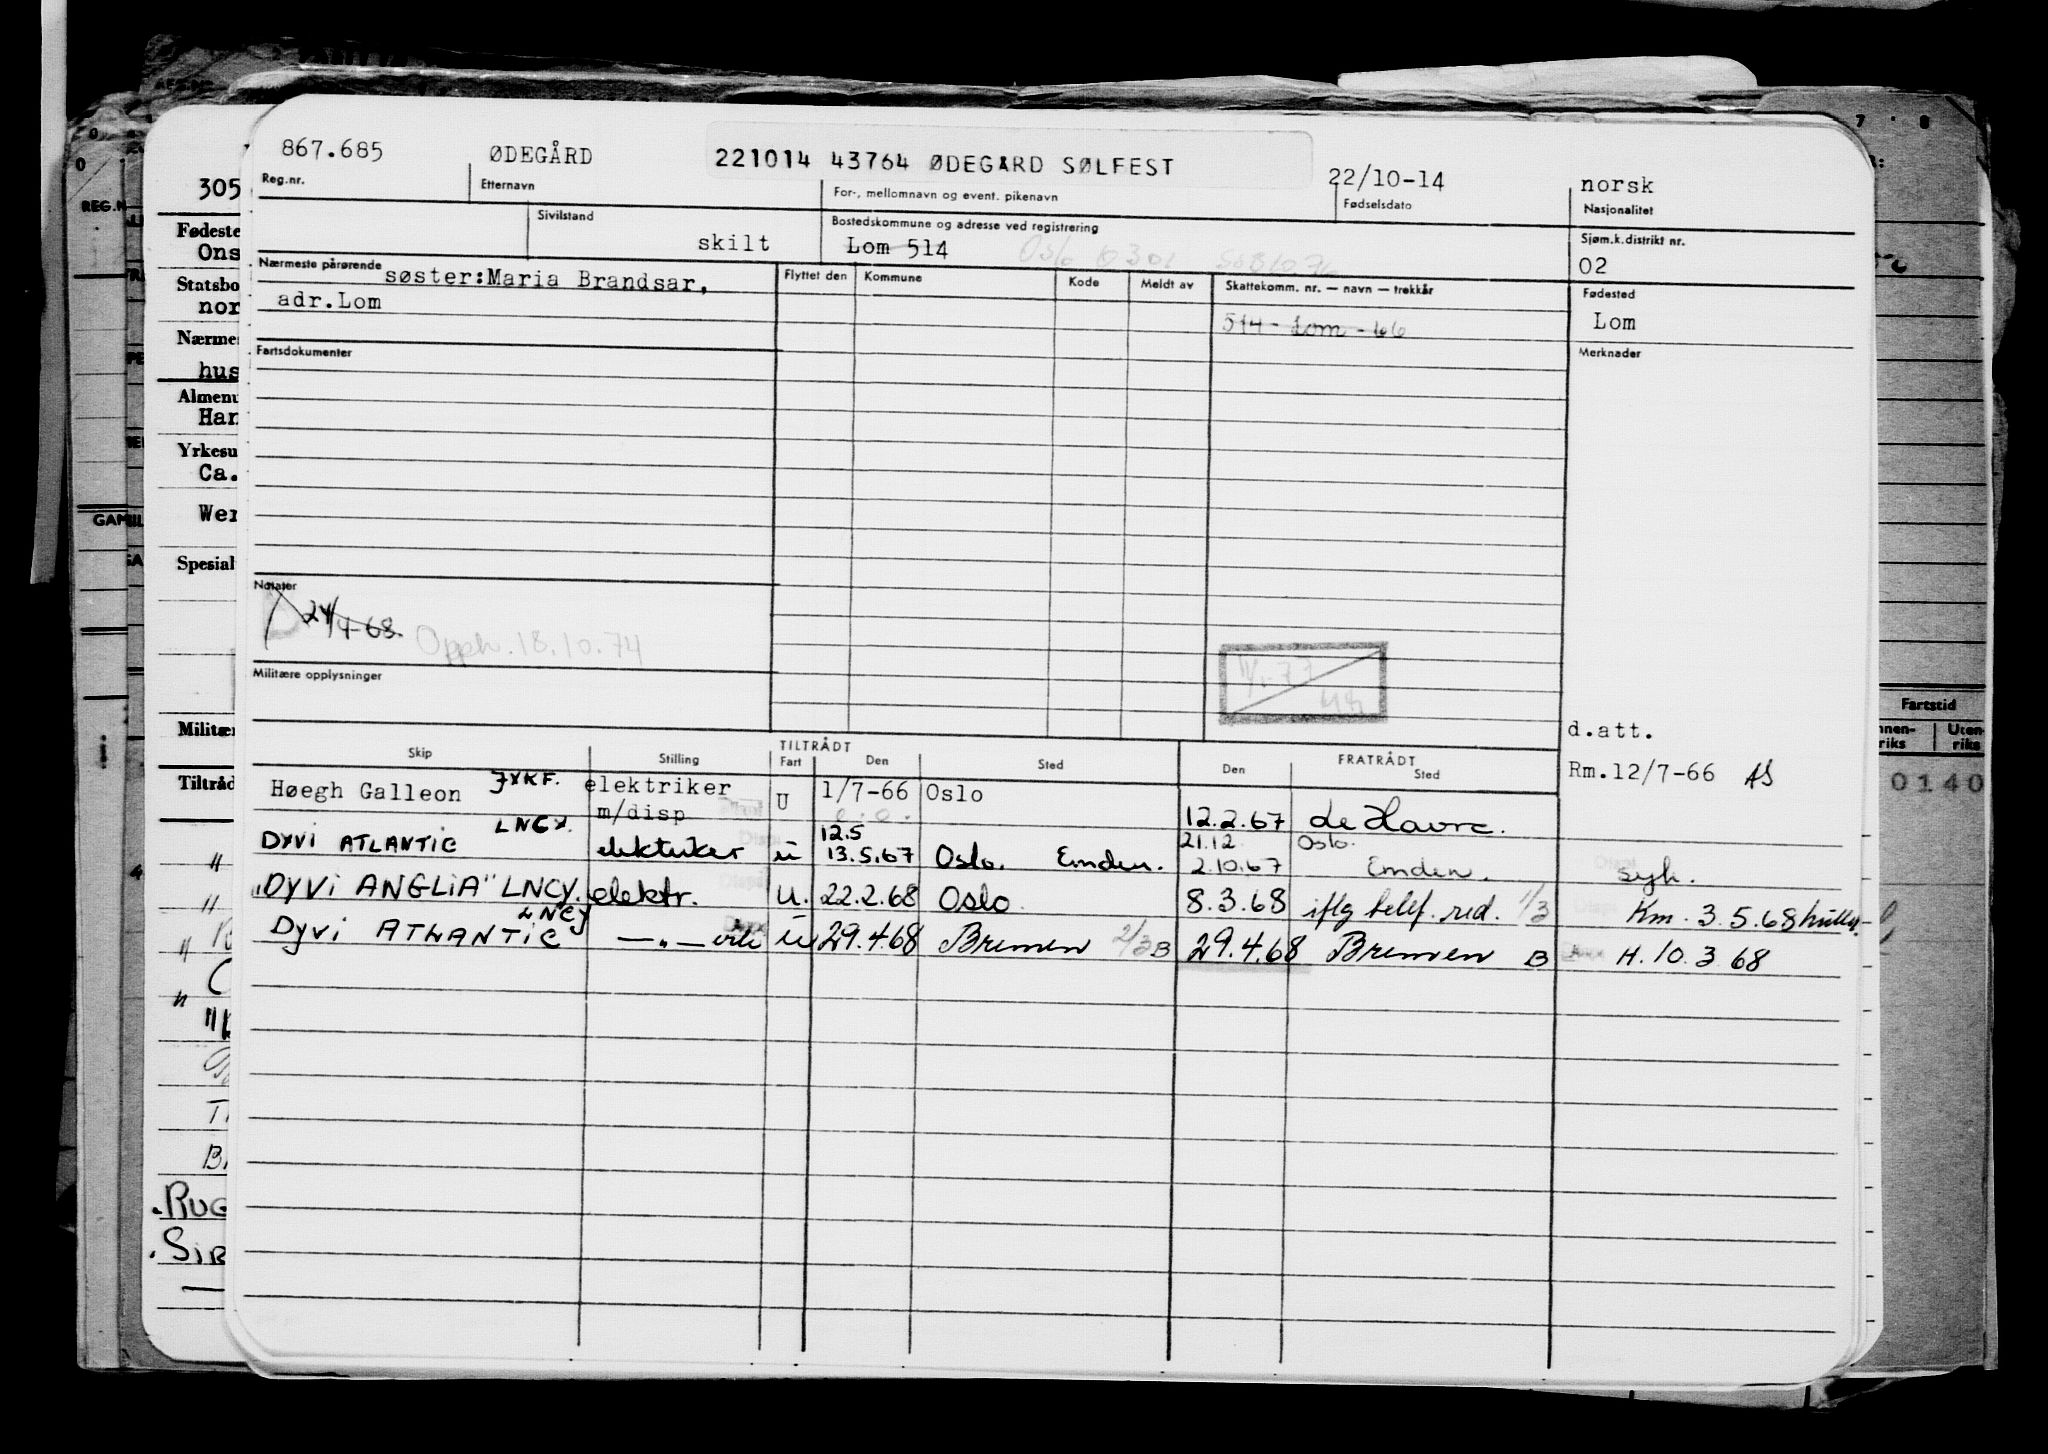 867.685 ØDEGÅRD 221014 43764 ØDEGARD SØLFEST 22/10-14 norsk
Reg.nr. Etternavn For-, mellomnavn og event. pikenavn Fødselsdato Nasjonalitet
Sivilstand Bostedskommune og adresse ved registrering Sjøm.k.distrikt nr.
skilt Lom 514 Oslo 0301 02
Nærmeste pårørende søster:Maria Brandsar, Flyttet den Kommune Kode Meldt av Skattekomm. nr. — navn — trekkår Fødested
adr.Lom 514 - Lom - 66 Lom
Fartsdokumenter Merknader
Notater
24/4-68.
Opph. 18.10.74
Militære opplysninger
d.att.
Skip Stilling TILTRÅDT Fart Den Sted FRATRÅDT Den Sted Rm.12/7-66 AS
Høegh Galleon JXKF. elektriker m/disp U 1/7-66 Oslo 12.2.67 de Havre.
DYVI ATLANTIC LNCY. elektriker u 12.5 13.5.67 Oslo. Emden. 21.12. 2.10.67 Oslo. Emden. syk.
"DYVI ANGLIA" LNCY. elektr. U. 22.2.68 Oslo 8.3.68 iflg telef. red. 1/3 Km. 3.5.68
DYVI ATLANTIC LNCY —„— u 29.4.68 Bremen 2/3 B 29.4.68 Bremen B H. 10.3.68
305
Fødeste
Ons
Statsbo
nor
Nærmes
hus
Almenu
Har
Yrkesu
Ca.
Wer
Spesial
Militær
Tiltråd
RUG
SIR
REG.N
GAM
Fartstid
Uten-
riks
0140
7 8